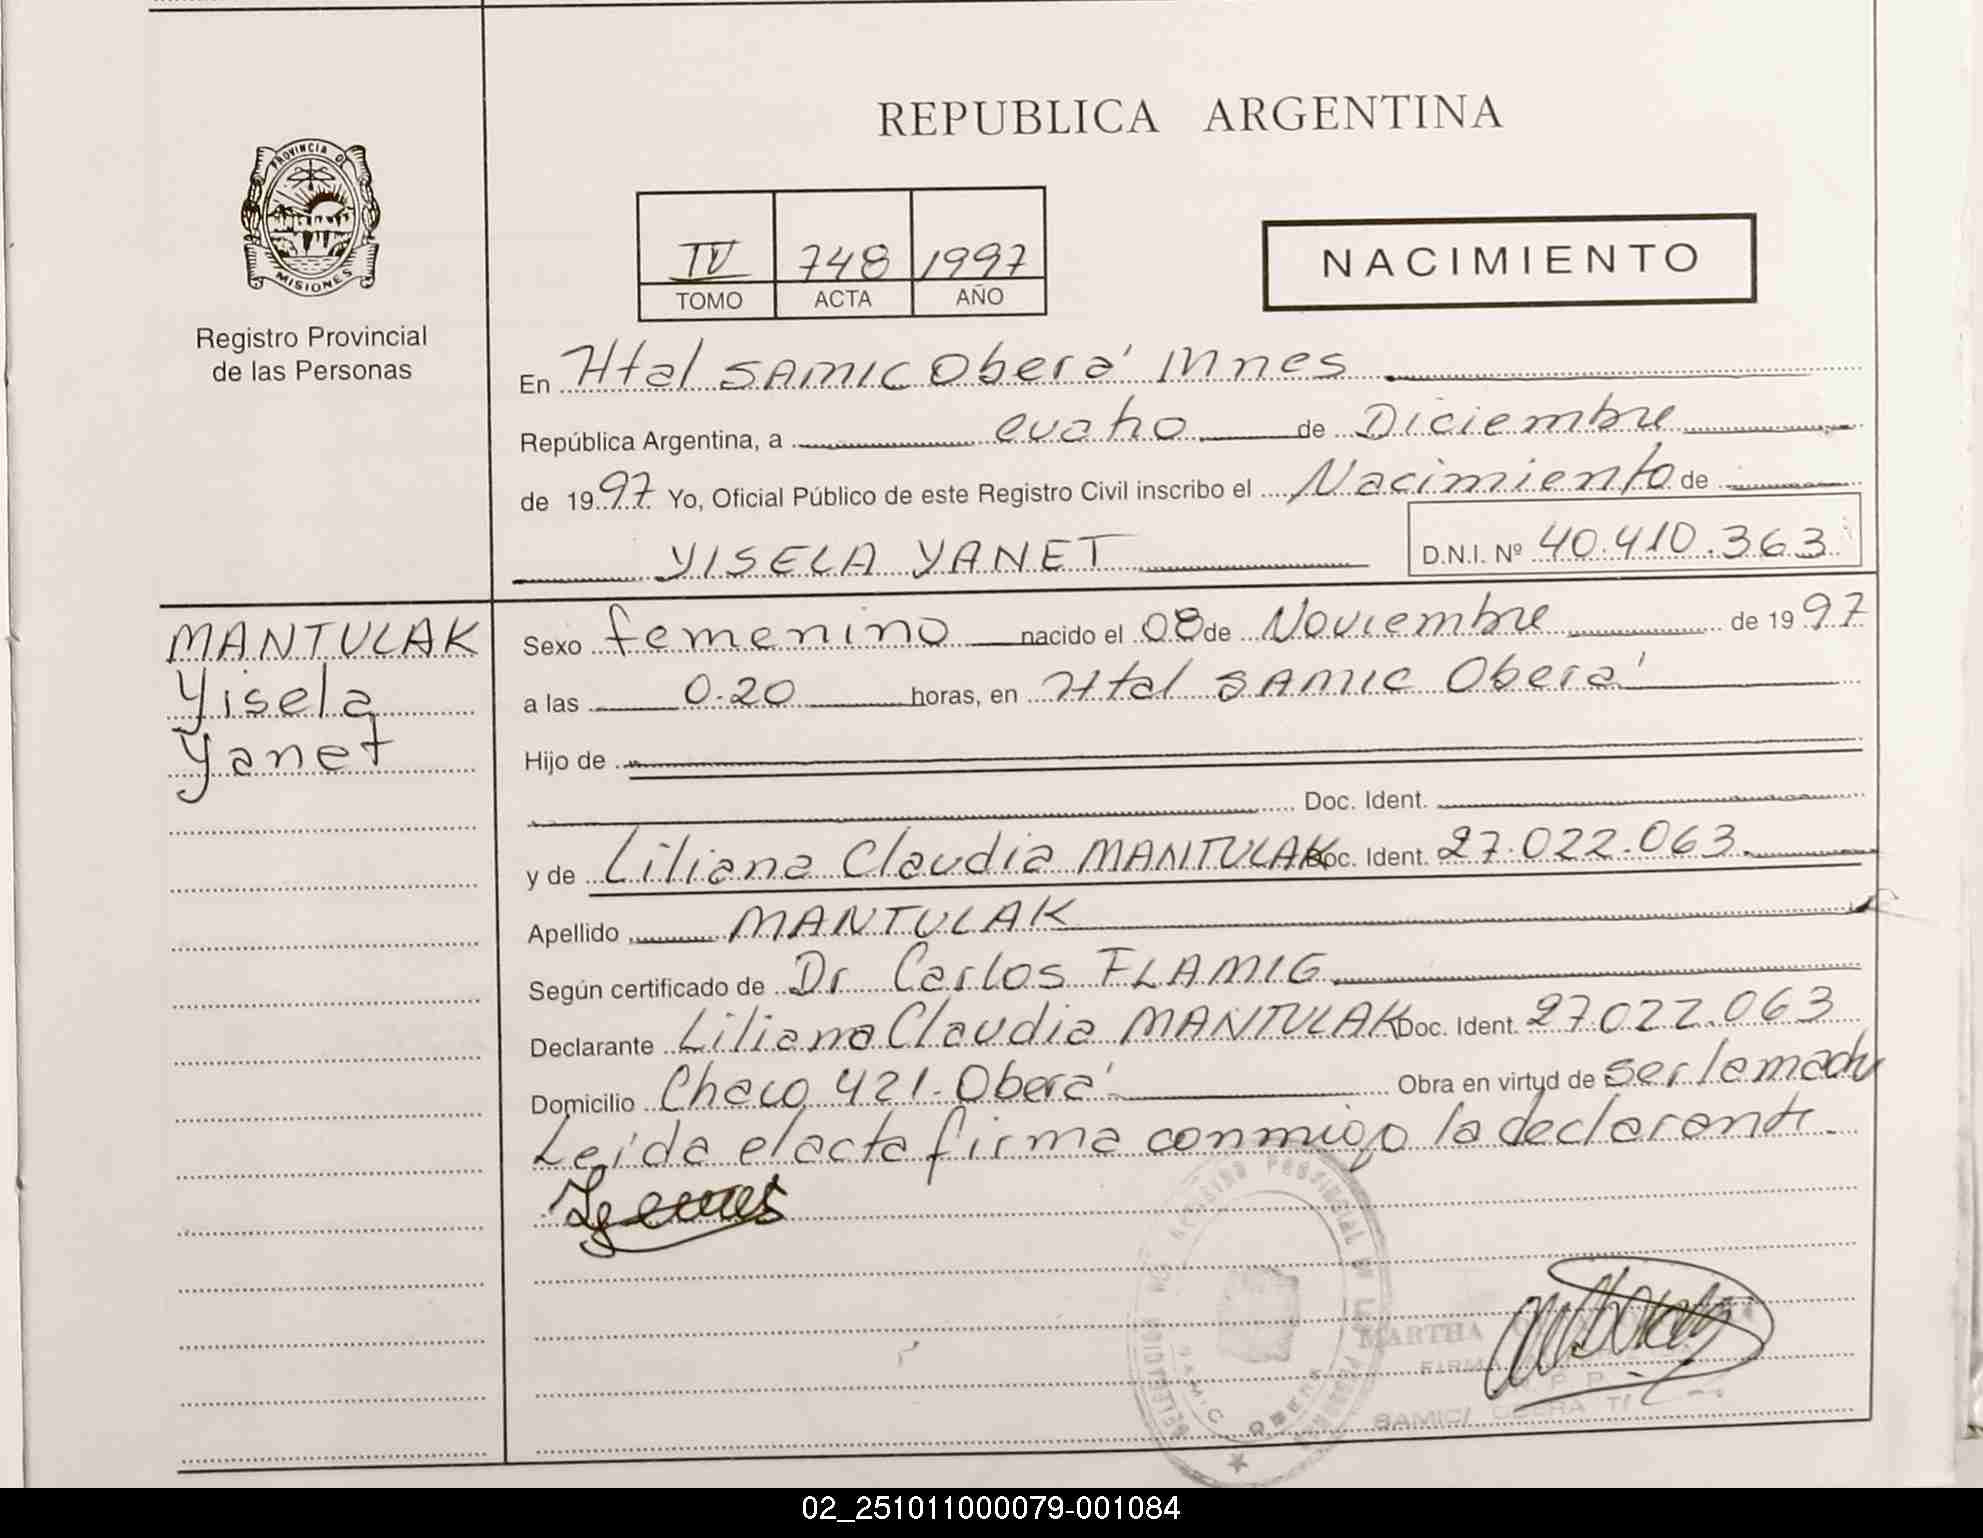 REPUBLICA ARGENTINA
PROVINCIA DE
MISIONES
Registro Provincial
de las Personas
IV 748 1997
TOMO ACTA AÑO
NACIMIENTO
En Htal SAMIC Oberá Mnes
República Argentina, a cuatro de Diciembre
de 1997 Yo, Oficial Público de este Registro Civil inscribo el Nacimiento de
YISELA YANET D.N.I. Nº 40.410.363
MANTULAK
Yisela
Yanet
Sexo femenino nacido el 08 de Noviembre de 1997
a las 0.20 horas, en Htal SAMIC Oberá
Hijo de
Doc. Ident.
y de Liliana Claudia MANTULAK Doc. Ident. 27.022.063.
Apellido MANTULAK
Según certificado de Dr Carlos FLAMIG
Declarante Liliana Claudia MANTULAK Doc. Ident. 27.022.063
Domicilio Chaco 421. Oberá Obra en virtud de ser la madre
Leida el acta firma conmigo la declarante.
MARTHA
FIRMA
SAMIC/ OBERA
SAMIC OBERA
02_251011000079-001084